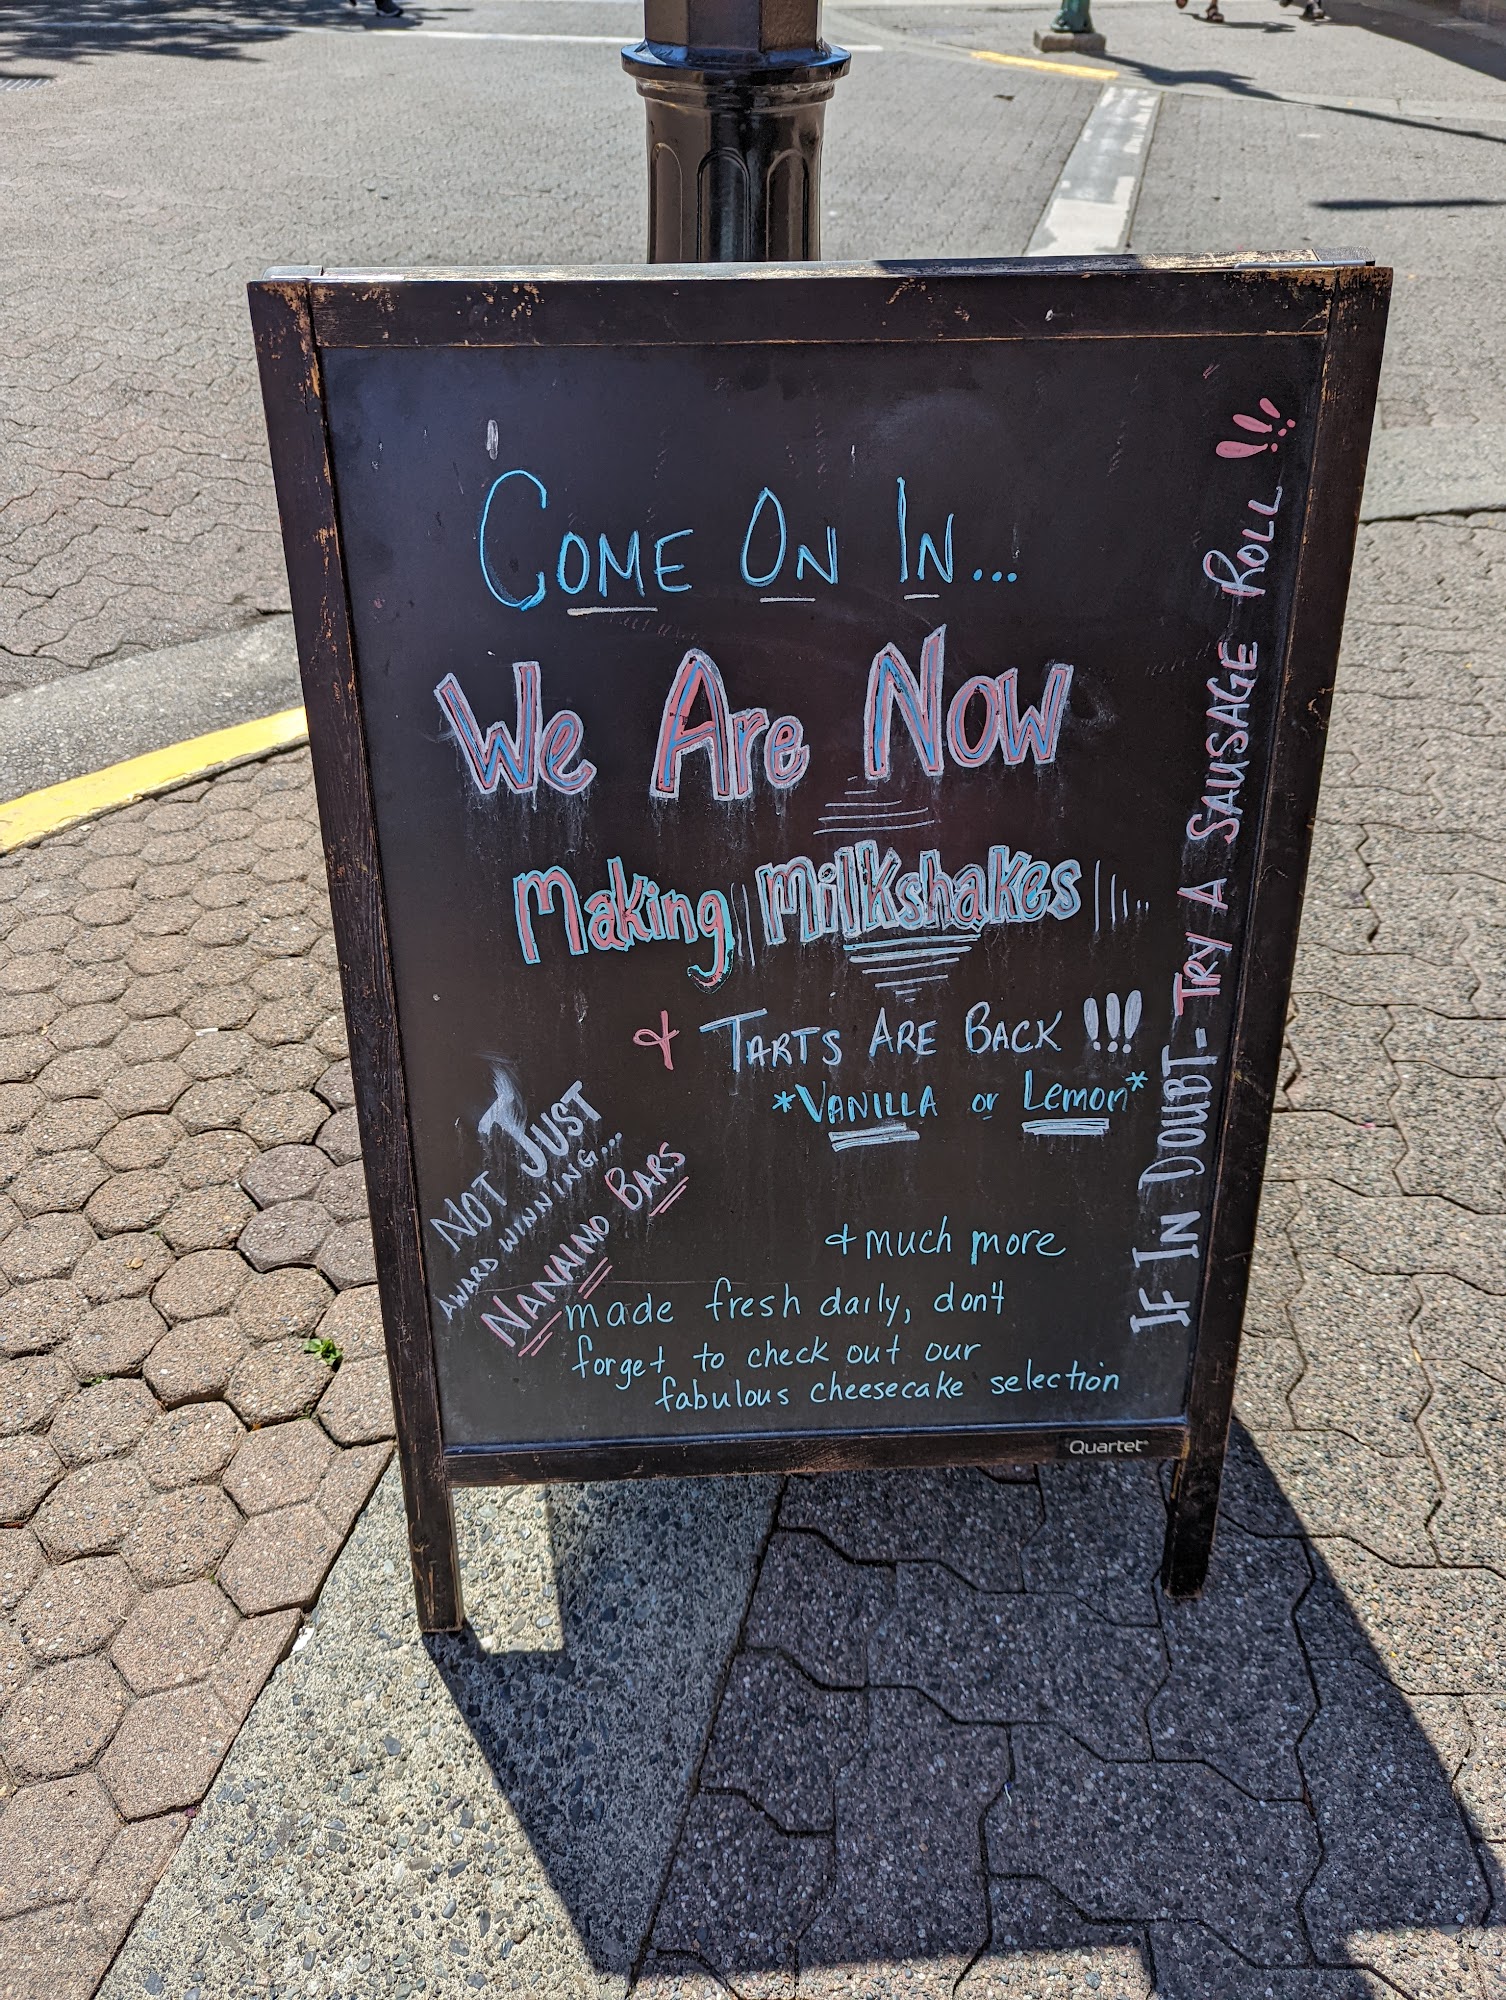 COME ON IN...
We Are Now
Making Milkshakes
& TARTS ARE BACK !!!
*VANILLA or Lemon*
NOT JUST
AWARD WINNING...
NANAIMO BARS
& much more
made fresh daily, don't
forget to check out our
fabulous cheesecake selection
IF IN DOUBT - TRY A SAUSAGE ROLL !!!
Quartet